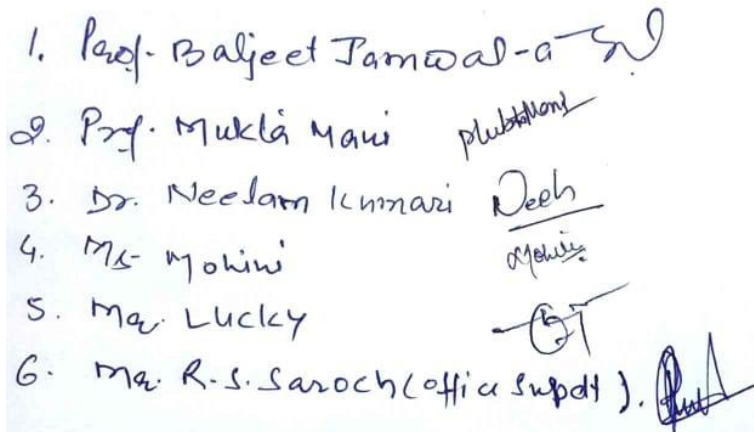 1. Prof. Baljeet Jamwal - a
2. Prof. Mukta Mani
3. Dr. Neelam Kumari Neeh
4. Ms Mohini Mohini
5. Mr. Lucky
6. Mr. R.S. Saroch (office Supdt).